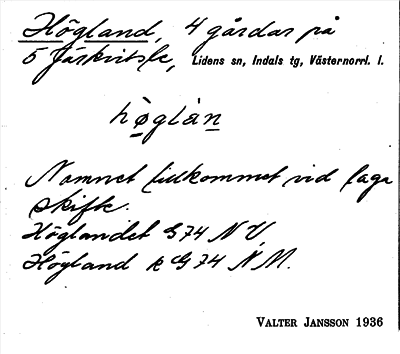 Högland, 4 gårdar på
5 Järkvitsle, Lidens sn, Indals tg, Västernorrl. l.
hø̀glàn
Namnet tillkommet vid laga
skifte.
Höglandet G74 N V.
Högland k G74 N M.
VALTER JANSSON 1936